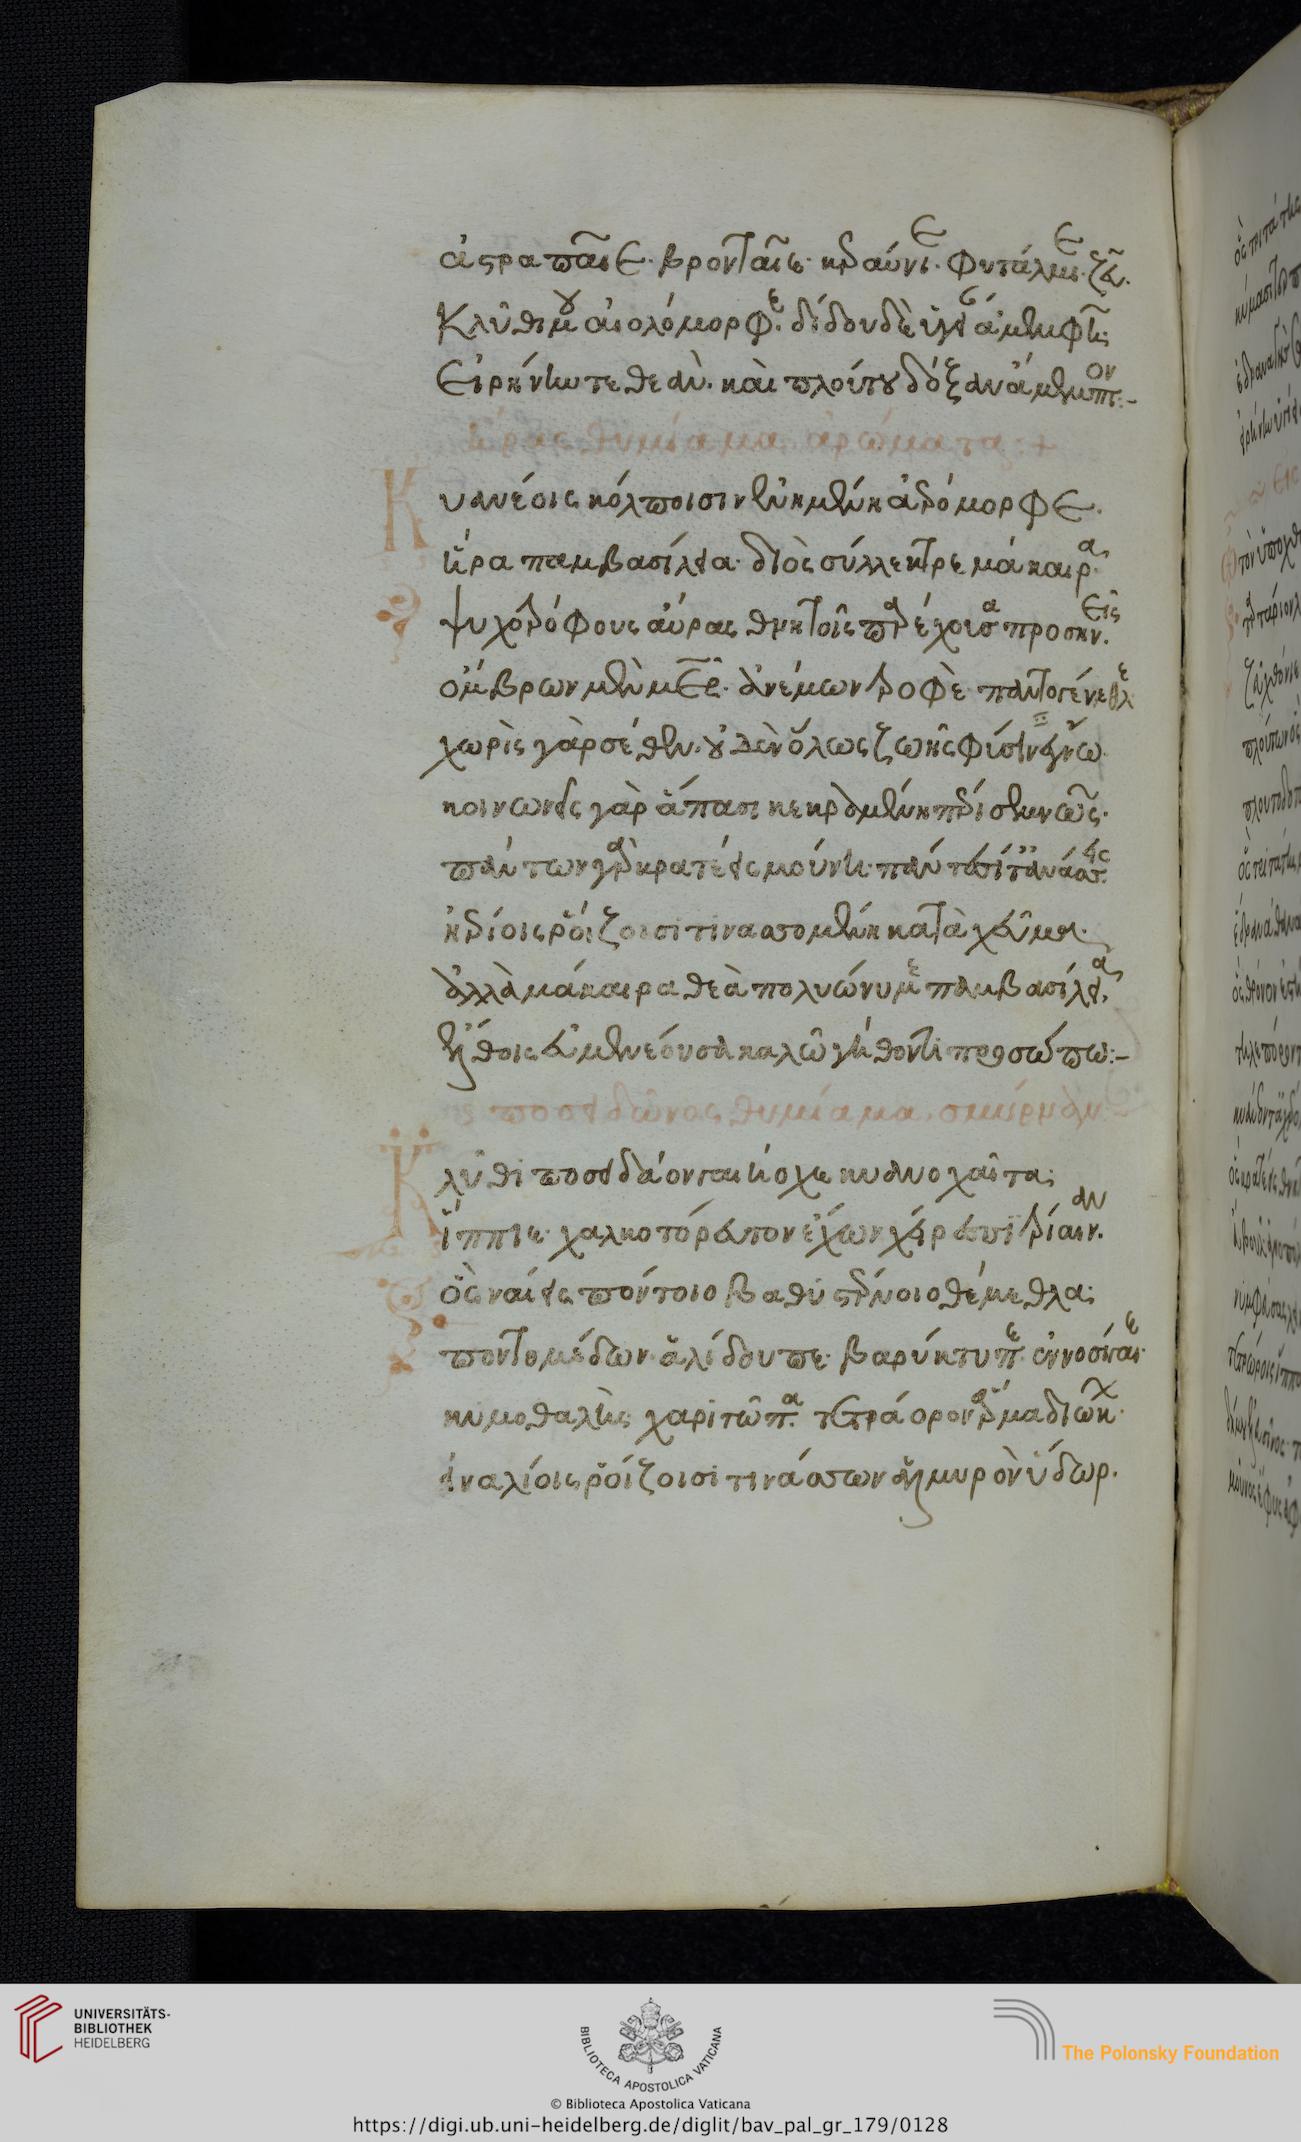 ἀστραπαῖε. βρονταῖε. κεραύνιε. φυτάλμιε ζεῦ.
Κλῦθί μου αἰολόμορφε. δίδου δὲ ὑγείαν ἀμεμφῆ;
Εἰρήνην τε θεὰν. καὶ πλούτου δόξαν ἄμεμπτον:-
ἥρας θυμίαμα ἀρώματα:+
Κυανέοις κόλποισιν ἐνημένη ἀερόμορφε.
ἥρα παμβασίλεια. διὸς σύλλεκτρε μάκαιρα.
ψυχοτρόφους αὔρας θνητοῖς παρέχουσα προσηνεῖς.
ὄμβρων μὲν μῆτερ. ἀνέμων τροφὲ. παντογένεθλε
χωρὶς γὰρ σέθεν. οὐδὲν ὅλως ζωῆς φύσιν ἔγνω.
κοινωνεῖς γὰρ ἅπασι κεκραμένη περίσεμνως.
πάντων γὰρ κρατέεις μούνη. πάντεσσί τ' ἀνάσσεις
ἠερίοις ῥοίζοισι τινασσομένη κατὰ χεῦμα.
ἀλλὰ μάκαιρα θεὰ πολυώνυμε παμβασίλεια,
ἔλθοις εὐμενέουσα καλῶ γήθοντι προσώπω:-
ποσειδῶνος θυμίαμα. σμύρναν
Κλῦθι ποσείδαον γαιήοχε κυανοχαῖτα;
ἵππιε. χαλκοτόρευτον ἔχων χείρεσσι τρίαιναν.
ὃς ναίεις πόντοιο βαθυστέρνοιο θέμεθλα;
ποντομέδων. ἁλίδουπε. βαρύκτυπε. ἐννοσίγαιε.
κυμοθαλὴς χαριτῶπα. τετράορον ἅρμα διώκων.
εἰναλίοις ῥοίζοισι τινάσσων ἁλμυρὸν ὕδωρ.
UNIVERSITÄTS-
BIBLIOTHEK
HEIDELBERG
BIBLIOTECA APOSTOLICA VATICANA
The Polonsky Foundation
© Biblioteca Apostolica Vaticana
https://digi.ub.uni-heidelberg.de/diglit/bav_pal_gr_179/0128